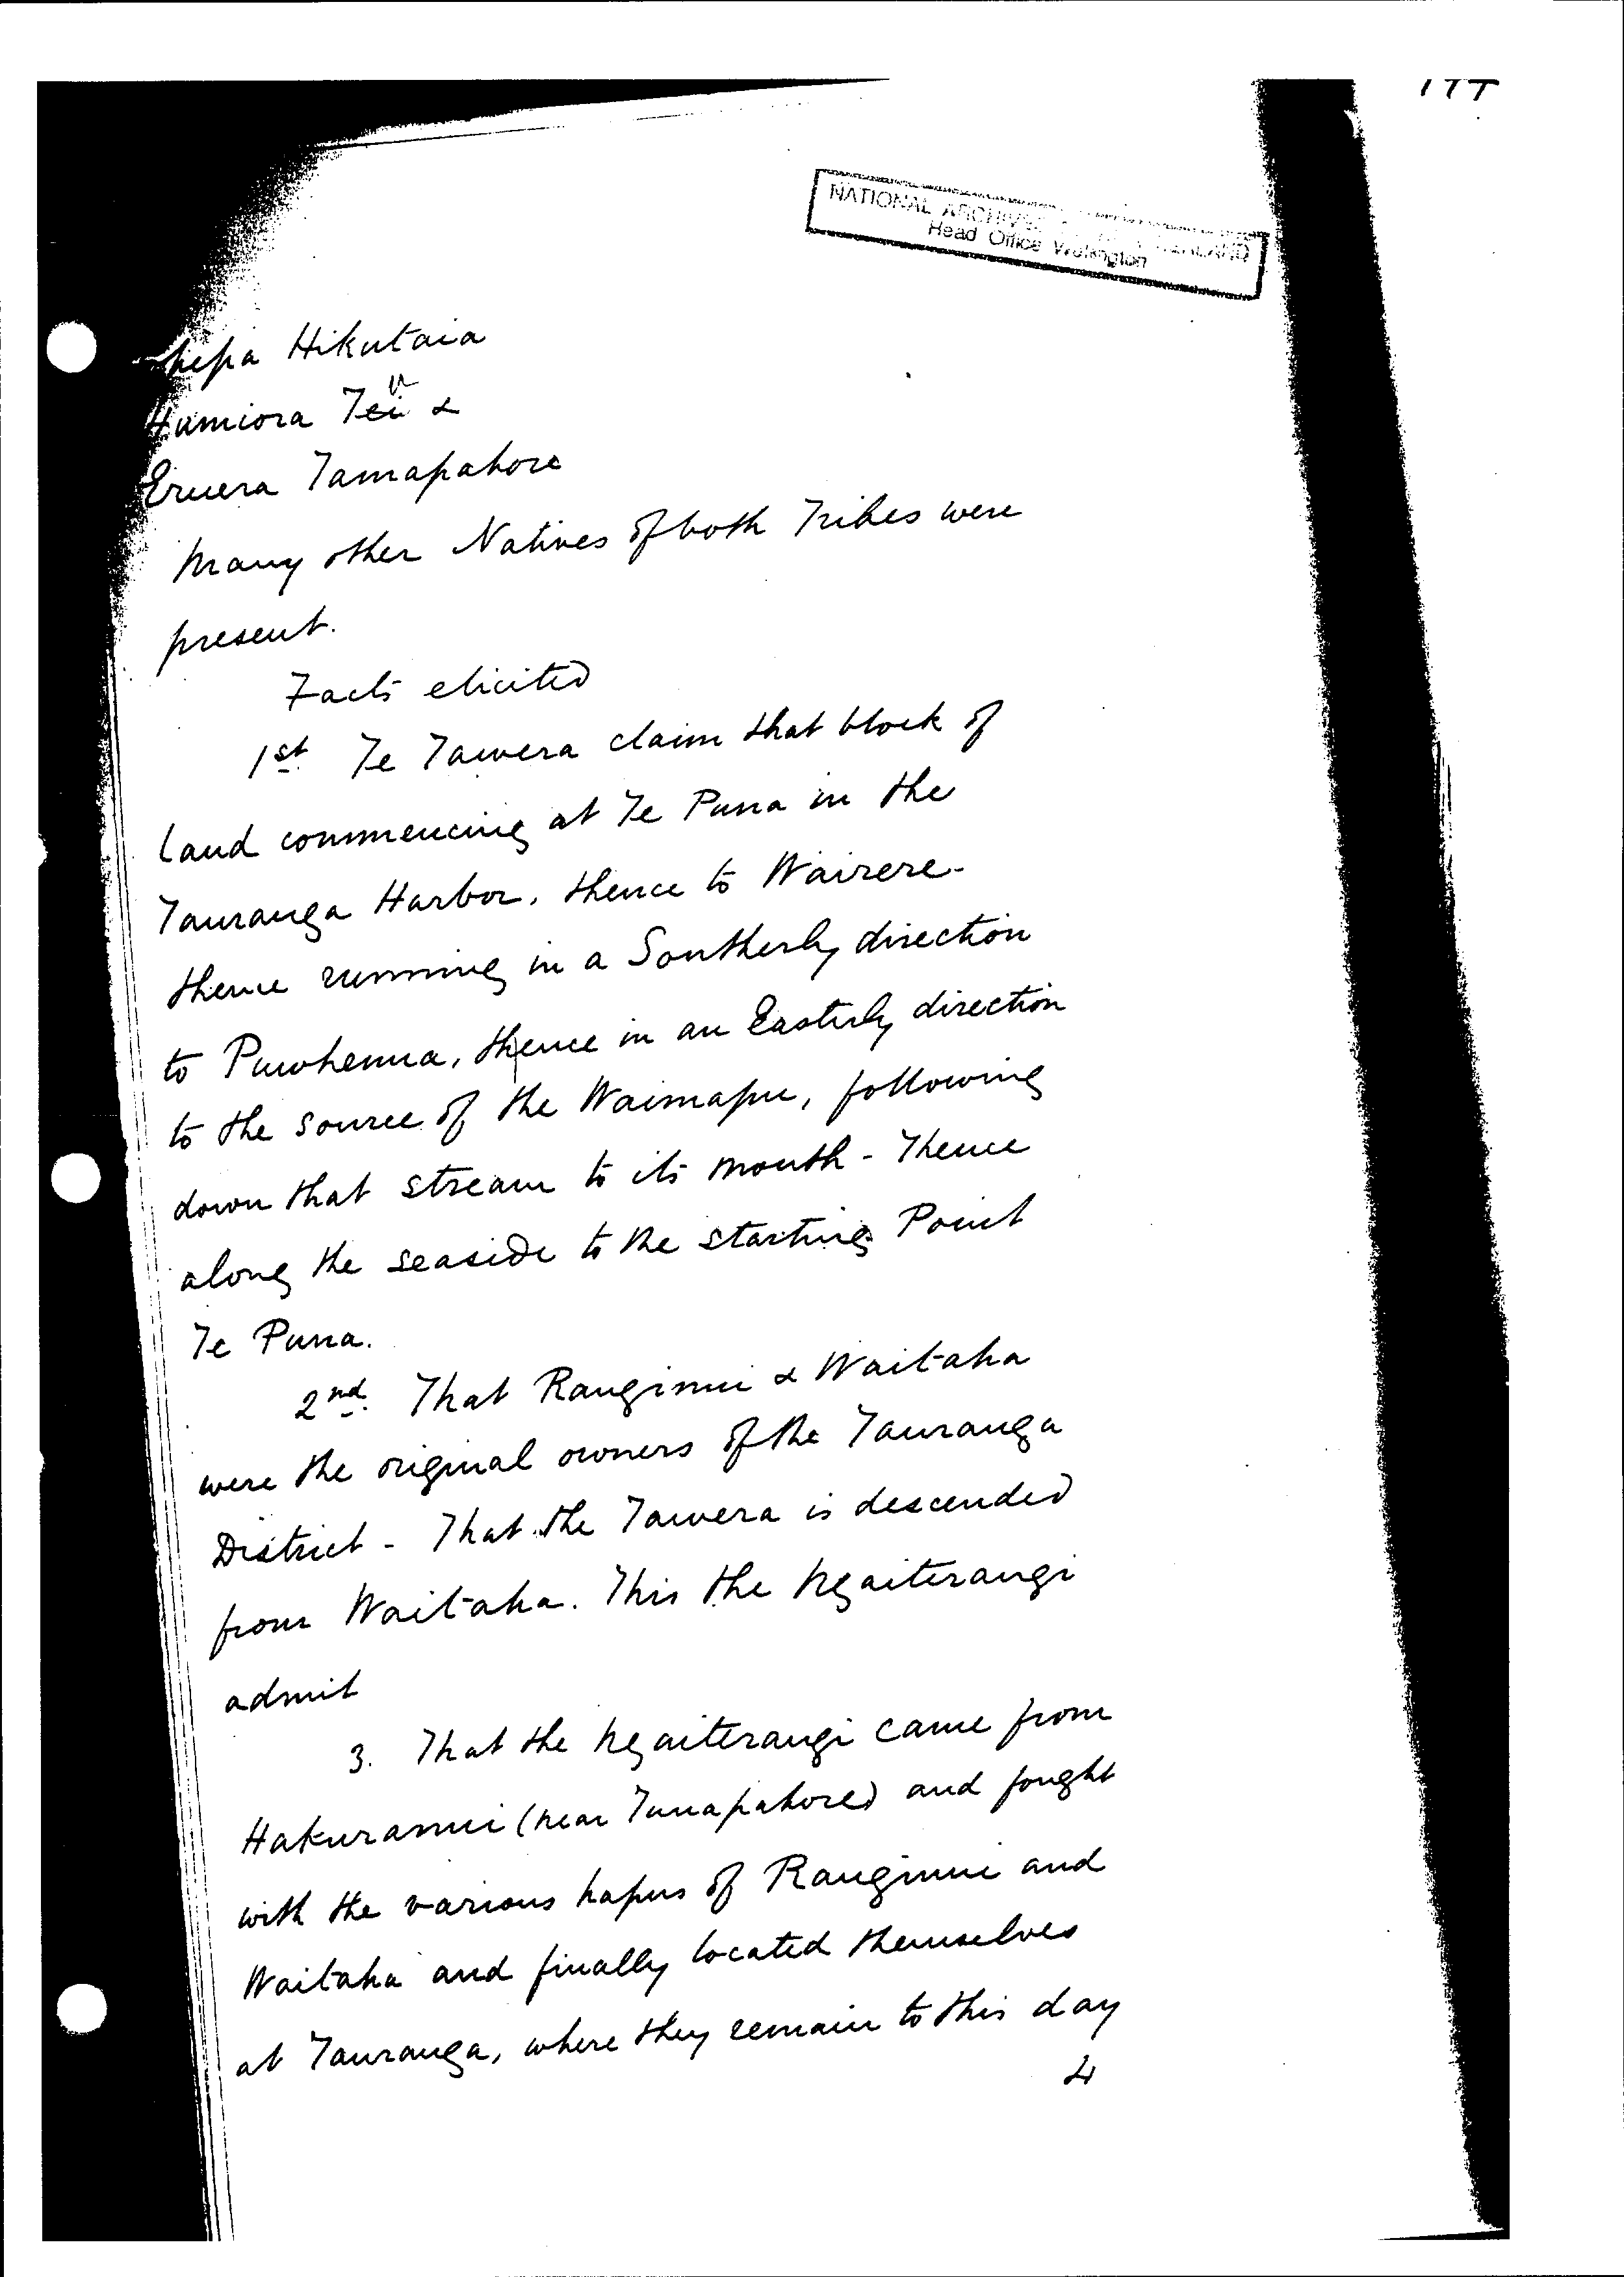 NATIONAL ARCHIVES
Head Office Wellington
hepa Hikutaia
Hamiora Tu &
Eruera Tamapahore
Many other Natives of both Tribes were
present.
Facts elicited
1st. Te Tawera claim that block of
land commencing at Te Puna in the
Tauranga Harbor, thence to Wairere -
thence running in a Southerly direction
to Puwhenua, thence in an Easterly direction
to the source of the Waimapu, following
down that stream to its mouth - Thence
along the seaside to the starting Point
Te Puna.
2nd. That Ranginui & Waitaha
were the original owners of the Tauranga
District - That the Tawera is descended
from Waitaha. This the Ngaiterangi
admit
3. That the Ngaiterangi came from
Hakuranui (near Tunapahore) and fought
with the various hapus of Ranginui and
Waitaha and finally located themselves
at Tauranga, where they remain to this day
4